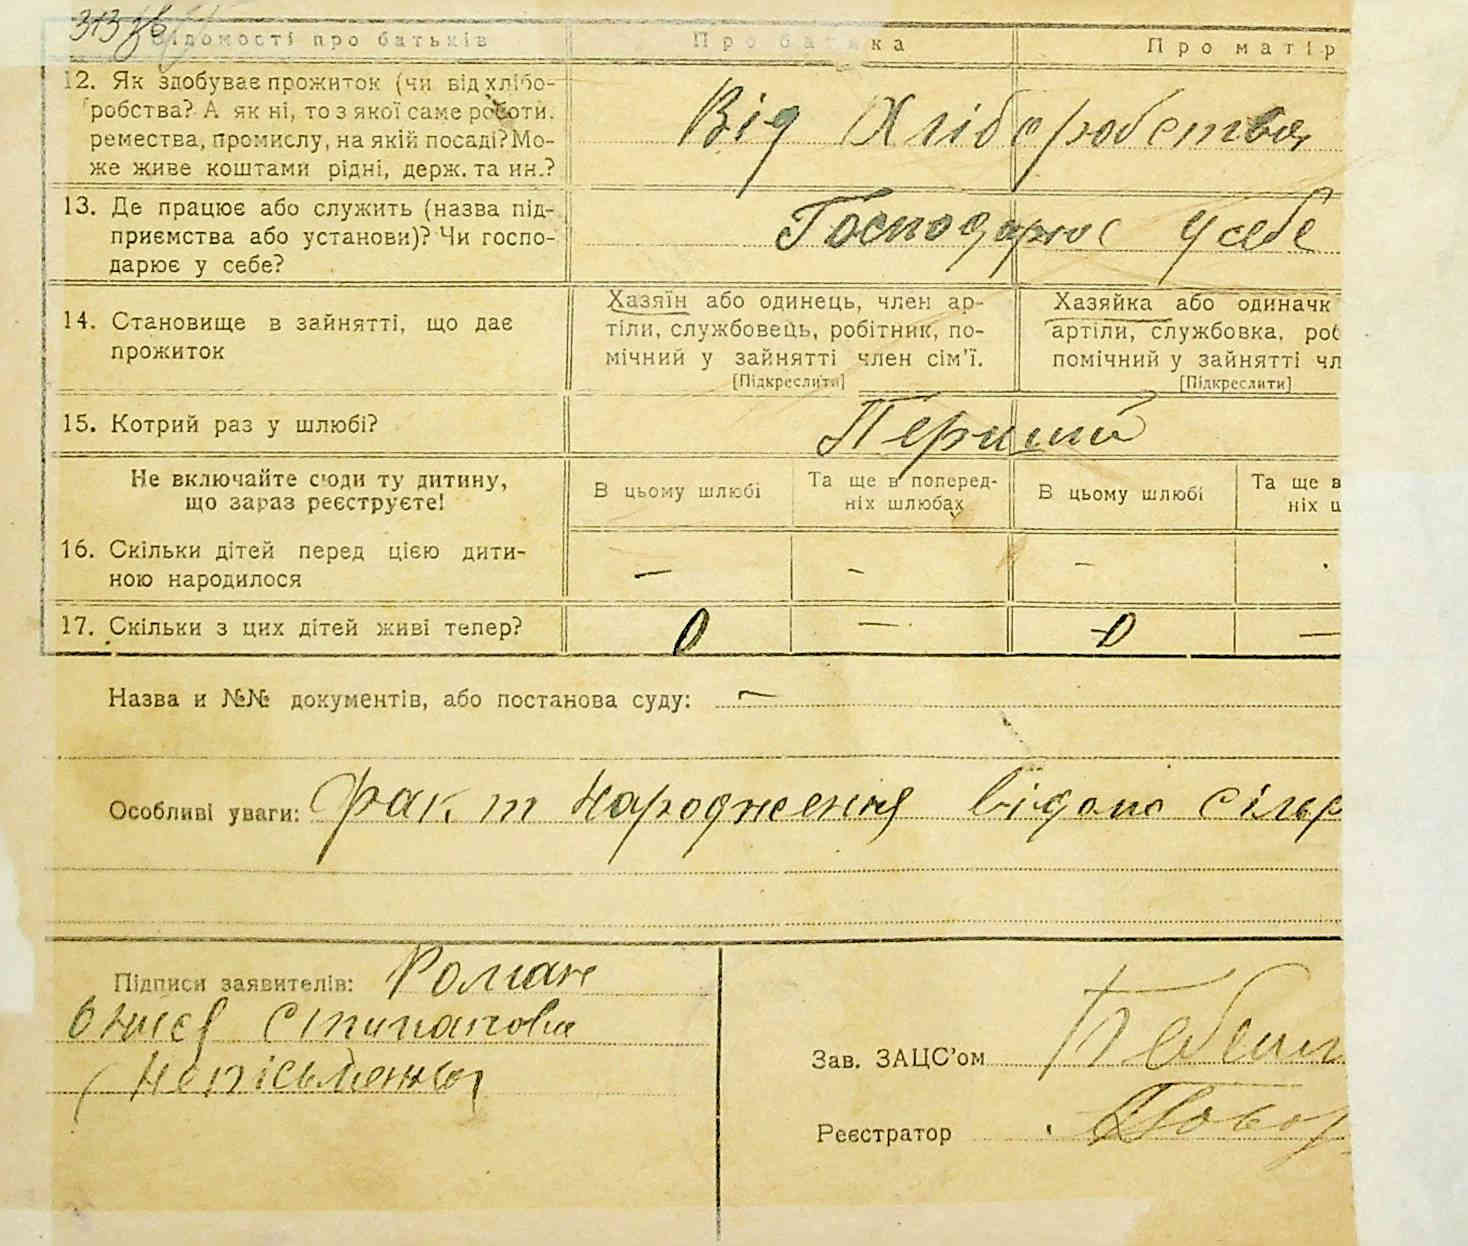 313 зв
Відомості про батьків
Про батька
Про матір
12. Як здобуває прожиток (чи від хлібо-
робства? А як ні, то з якої саме роботи.
ремества, промислу, на якій посаді? Мо-
же живе коштами рідні, держ. та ин.?
Від Хліборобства
13. Де працює або служить (назва під-
приємства або установи)? Чи госпо-
дарює у себе?
Господарює у себе
14. Становище в зайнятті, що дає
прожиток
Хазяїн або одинець, член ар-
тіли, службовець, робітник, по-
мічний у зайнятті член сім'ї.
[Підкреслити]
Хазяйка або одиначк
артіли, службовка, роб
помічний у зайнятті чл
[Підкреслити]
15. Котрий раз у шлюбі?
Перший
Не включайте сюди ту дитину,
що зараз реєструєте!
В цьому шлюбі
Та ще в поперед-
ніх шлюбах
В цьому шлюбі
Та ще в
ніх ш
16. Скільки дітей перед цією дити-
ною народилося
— — — -
17. Скільки з цих дітей живі тепер?
0 — -0 —
Назва и №№ документів, або постанова суду: —
Особливі уваги: факт народження відомо сільр
Підписи заявителів: Роман
(неписьменный)
Зав. ЗАЦС'ом
Реєстратор